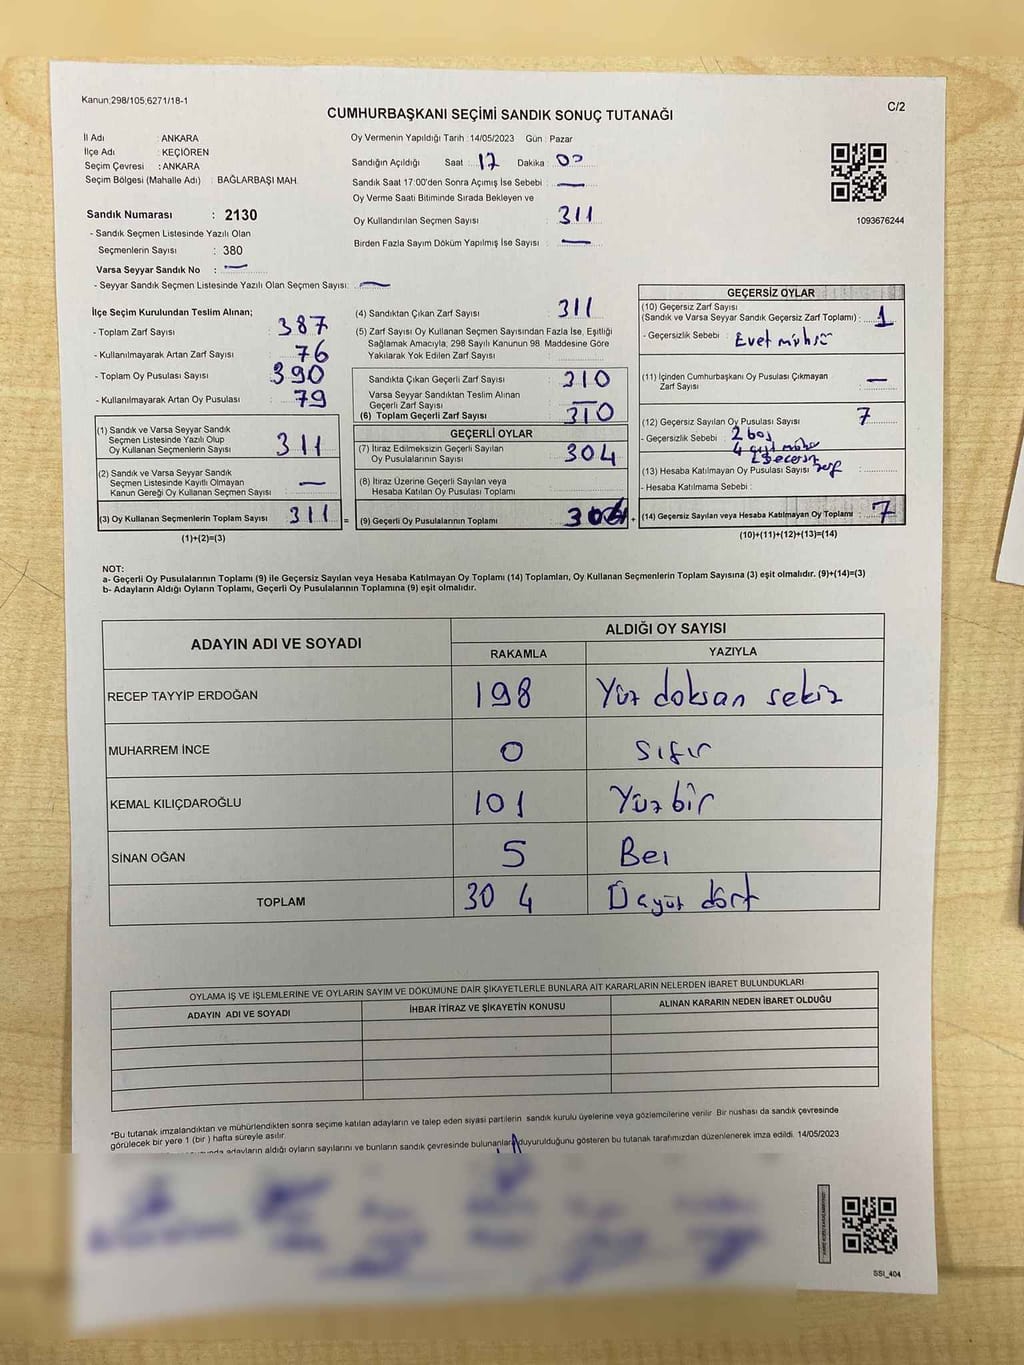 Kanun:298/105,6271/18-1
C/2
CUMHURBAŞKANI SEÇİMİ SANDIK SONUÇ TUTANAĞI
İl Adı : ANKARA
İlçe Adı : KEÇİÖREN
Seçim Çevresi : ANKARA
Seçim Bölgesi (Mahalle Adı) : BAĞLARBAŞI MAH.
Sandık Numarası : 2130
- Sandık Seçmen Listesinde Yazılı Olan
Seçmenlerin Sayısı : 380
Varsa Seyyar Sandık No : —
- Seyyar Sandık Seçmen Listesinde Yazılı Olan Seçmen Sayısı: —
Oy Vermenin Yapıldığı Tarih :14/05/2023 Gün : Pazar
Sandığın Açıldığı Saat : 17 Dakika : 00
Sandık Saat 17:00'den Sonra Açımış İse Sebebi : —
Oy Verme Saati Bitiminde Sırada Bekleyen ve
Oy Kullandırılan Seçmen Sayısı : 311
Birden Fazla Sayım Döküm Yapılmış İse Sayısı : —
1093676244
İlçe Seçim Kurulundan Teslim Alınan;
- Toplam Zarf Sayısı : 387
- Kullanılmayarak Artan Zarf Sayısı : 76
- Toplam Oy Pusulası Sayısı : 390
- Kullanılmayarak Artan Oy Pusulası : 79
(1) Sandık ve Varsa Seyyar Sandık
Seçmen Listesinde Yazılı Olup
Oy Kullanan Seçmenlerin Sayısı : 311
(2) Sandık ve Varsa Seyyar Sandık
Seçmen Listesinde Kayıtlı Olmayan
Kanun Gereği Oy Kullanan Seçmen Sayısı : —
(3) Oy Kullanan Seçmenlerin Toplam Sayısı : 311 =
(1)+(2)=(3)
(4) Sandıktan Çıkan Zarf Sayısı : 311
(5) Zarf Sayısı Oy Kullanan Seçmen Sayısından Fazla İse, Eşitliği
Sağlamak Amacıyla, 298 Sayılı Kanunun 98. Maddesine Göre
Yakılarak Yok Edilen Zarf Sayısı :
Sandıkta Çıkan Geçerli Zarf Sayısı : 310
Varsa Seyyar Sandıktan Teslim Alınan
Geçerli Zarf Sayısı : —
(6) Toplam Geçerli Zarf Sayısı : 310
GEÇERLİ OYLAR
(7) İtiraz Edilmeksizin Geçerli Sayılan
Oy Pusulalarının Sayısı : 304
(8) İtiraz Üzerine Geçerli Sayılan veya
Hesaba Katılan Oy Pusulası Toplamı :
(9) Geçerli Oy Pusulalarının Toplamı : 304 +
GEÇERSİZ OYLAR
(10) Geçersiz Zarf Sayısı
(Sandık ve Varsa Seyyar Sandık Geçersiz Zarf Toplamı) : 1
- Geçersizlik Sebebi : Evet mührü
(11) İçinden Cumhurbaşkanı Oy Pusulası Çıkmayan
Zarf Sayısı : —
(12) Geçersiz Sayılan Oy Pusulası Sayısı : 7
- Geçersizlik Sebebi : 2 boş
(13) Hesaba Katılmayan Oy Pusulası Sayısı :
- Hesaba Katılmama Sebebi :
(14) Geçersiz Sayılan veya Hesaba Katılmayan Oy Toplamı : 7
(10)+(11)+(12)+(13)=(14)
NOT:
a- Geçerli Oy Pusulalarının Toplamı (9) ile Geçersiz Sayılan veya Hesaba Katılmayan Oy Toplamı (14) Toplamları, Oy Kullanan Seçmenlerin Toplam Sayısına (3) eşit olmalıdır. (9)+(14)=(3)
b- Adayların Aldığı Oyların Toplamı, Geçerli Oy Pusulalarının Toplamına (9) eşit olmalıdır.
ADAYIN ADI VE SOYADI
ALDIĞI OY SAYISI
RAKAMLA YAZIYLA
RECEP TAYYİP ERDOĞAN 198 Yüz doksan sekiz
MUHARREM İNCE 0 Sıfır
KEMAL KILIÇDAROĞLU 101 Yüz bir
SİNAN OĞAN 5 Beş
TOPLAM 304 Üçyüz dört
OYLAMA İŞ VE İŞLEMLERİNE VE OYLARIN SAYIM VE DÖKÜMÜNE DAİR ŞİKAYETLERLE BUNLARA AİT KARARLARIN NELERDEN İBARET BULUNDUKLARI
ADAYIN ADI VE SOYADI İHBAR İTİRAZ VE ŞİKAYETİN KONUSU ALINAN KARARIN NEDEN İBARET OLDUĞU
*Bu tutanak imzalandıktan ve mühürlendikten sonra seçime katılan adayların ve talep eden siyasi partilerin sandık kurulu üyelerine veya gözlemcilerine verilir. Bir nushası da sandık çevresinde
görülecek bir yere 1 (bir ) hafta süreyle asılır.
adayların aldığı oyların sayılarını ve bunların sandık çevresinde bulunanlara duyurulduğunu gösteren bu tutanak tarafımızdan düzenlenerek imza edildi. 14/05/2023
SSI_404